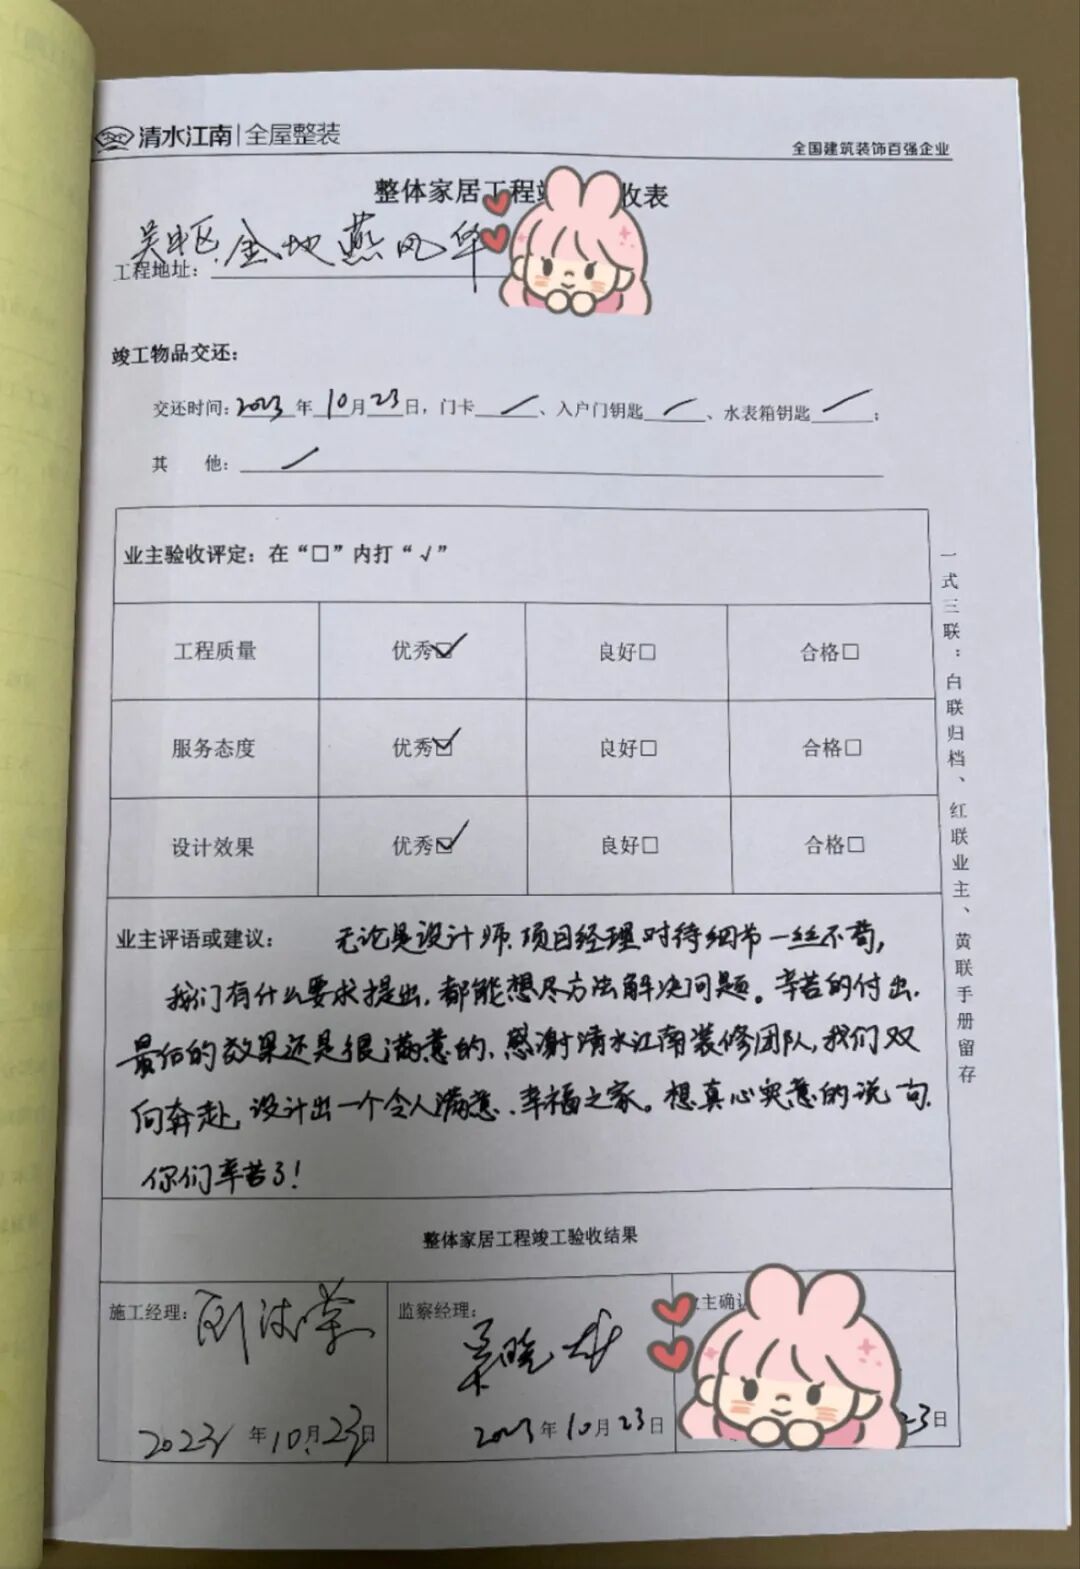 清水江南|全屋整装
全国建筑装饰百强企业
整体家居工程 收表
工程地址: 吴中区.金地燕风华
竣工物品交还:
交还时间: 2023 年 10 月 23 日, 门卡 / 、入户门钥匙 / 、水表箱钥匙 / ;
其 他: /
业主验收评定: 在“□”内打“√”
工程质量 优秀☑ 良好□ 合格□
服务态度 优秀☑ 良好□ 合格□
设计效果 优秀☑ 良好□ 合格□
一式三联:白联归档、红联业主、黄联手册留存
业主评语或建议: 无论是设计师.项目经理对待细节一丝不苟,
我们有什么要求提出.都能想尽方法解决问题。辛苦的付出.
最后的效果还是很满意的.感谢清水江南装修团队,我们双
向奔赴,设计出一个令人满意、幸福之家。想真心实意的说句.
你们辛苦了!
整体家居工程竣工验收结果
施工经理:
监察经理:
主确
2023 年 10 月 23 日
2023 年 10 月 23 日
23 日